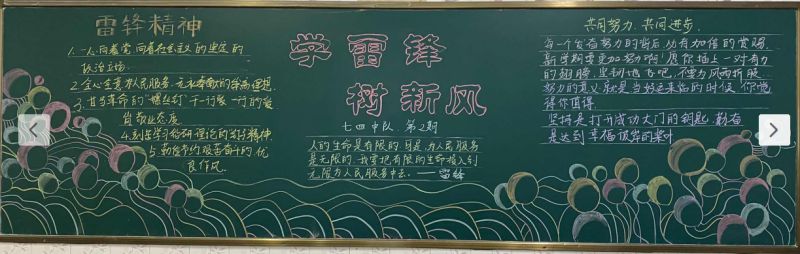 雷锋精神
1.一心向着党,向着社会主义的坚定的
政治立场.
2.全心全意为人民服务,无私奉献的崇高理想.
3.甘当革命的"螺丝钉"干一行爱一行的爱
岗敬业态度
4.刻苦学习钻研理论的钉钉精神
5.勤俭节约艰苦奋斗的优
良作风.
学雷锋
树新风
七四中队 第2期
人的生命是有限的,可是,为人民服务
是无限的,我要把有限的生命投入到
无限为人民服务中去.——雷锋
共同努力,共同进步.
每一个发奋努力的背后,必有加倍的赏赐.
新学期需更加努力啊!愿你插上一对有力
的翅膀,坚韧地飞吧,不要为风雨折服.
努力的意义就是当好运来临的时候,你觉
得你值得.
坚持是打开成功大门的钥匙,勤奋
是达到幸福彼岸的桨叶